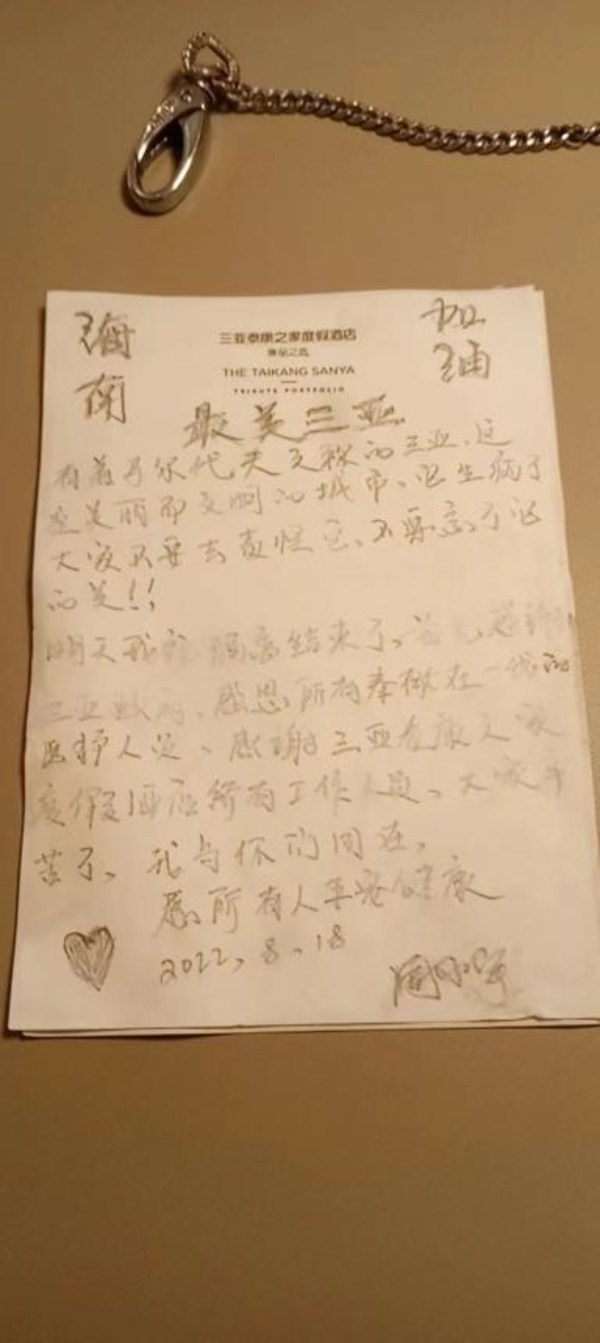 海南
加油
三亚泰康之家度假酒店
臻品之选
THE TAIKANG SANYA
TRIBUTE PORTFOLIO
最美三亚
有着马尔代夫之称的三亚、这
座美丽而文明的城市、它生病了
大家不要去责怪它、不要忘了它
的美!!
明天我 隔离结束了、首先感谢
三亚政府、感恩所有奉献在一线的
医护人员、感谢三亚泰康之家
度假酒店所有工作人员、大家辛
苦了、我与你们同在,
愿所有人平安健康
2022、8、18